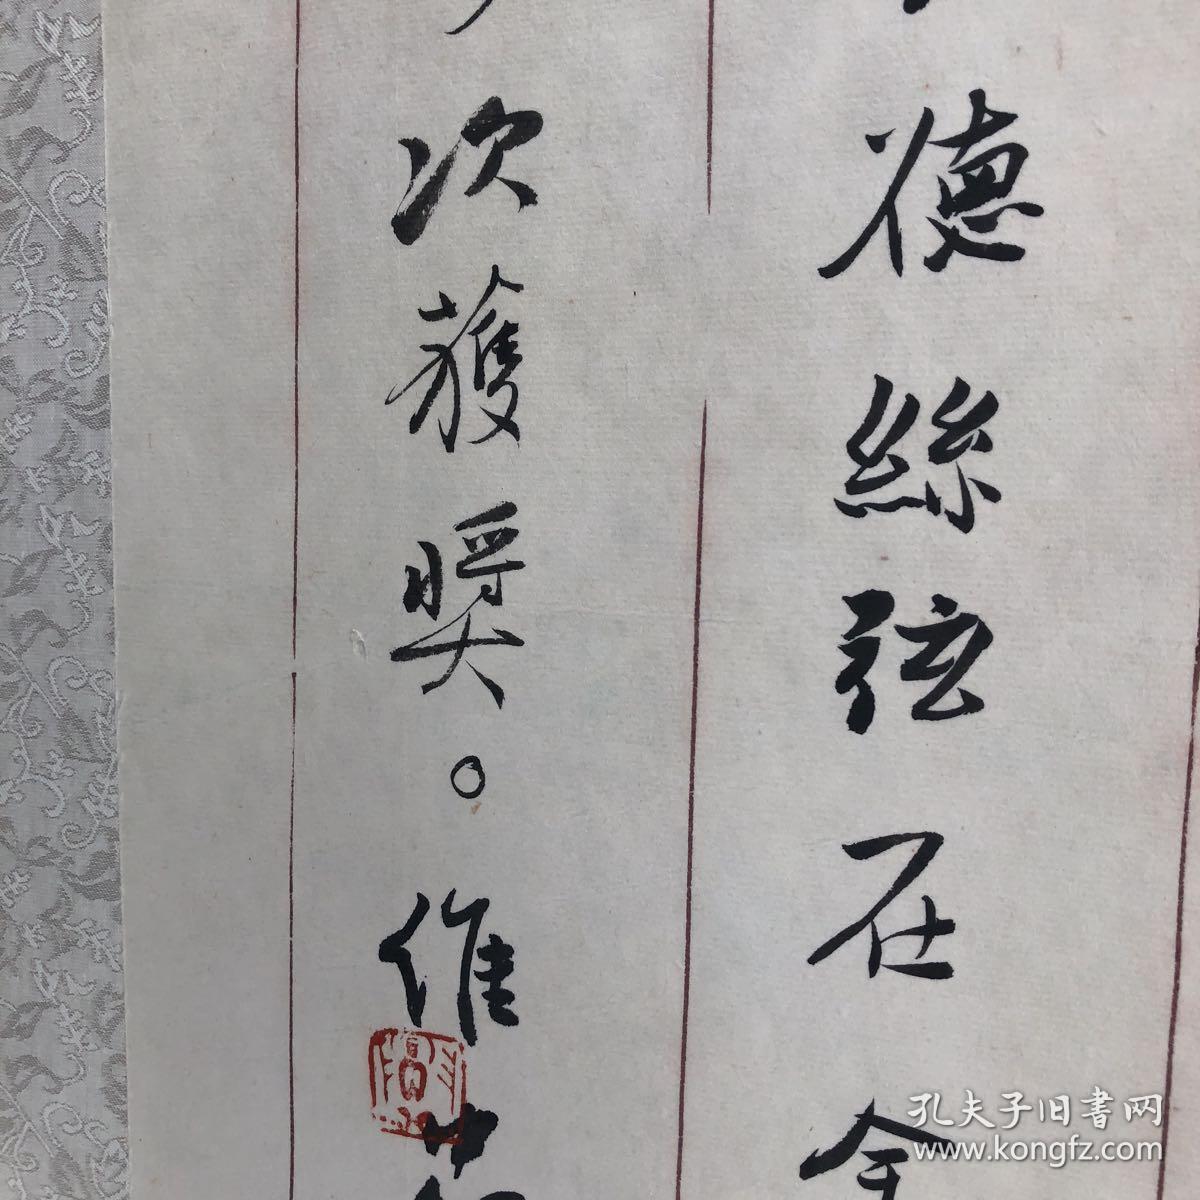 德絲弦在全
次獲奬。維
孔夫子旧書网
www.kongfz.com